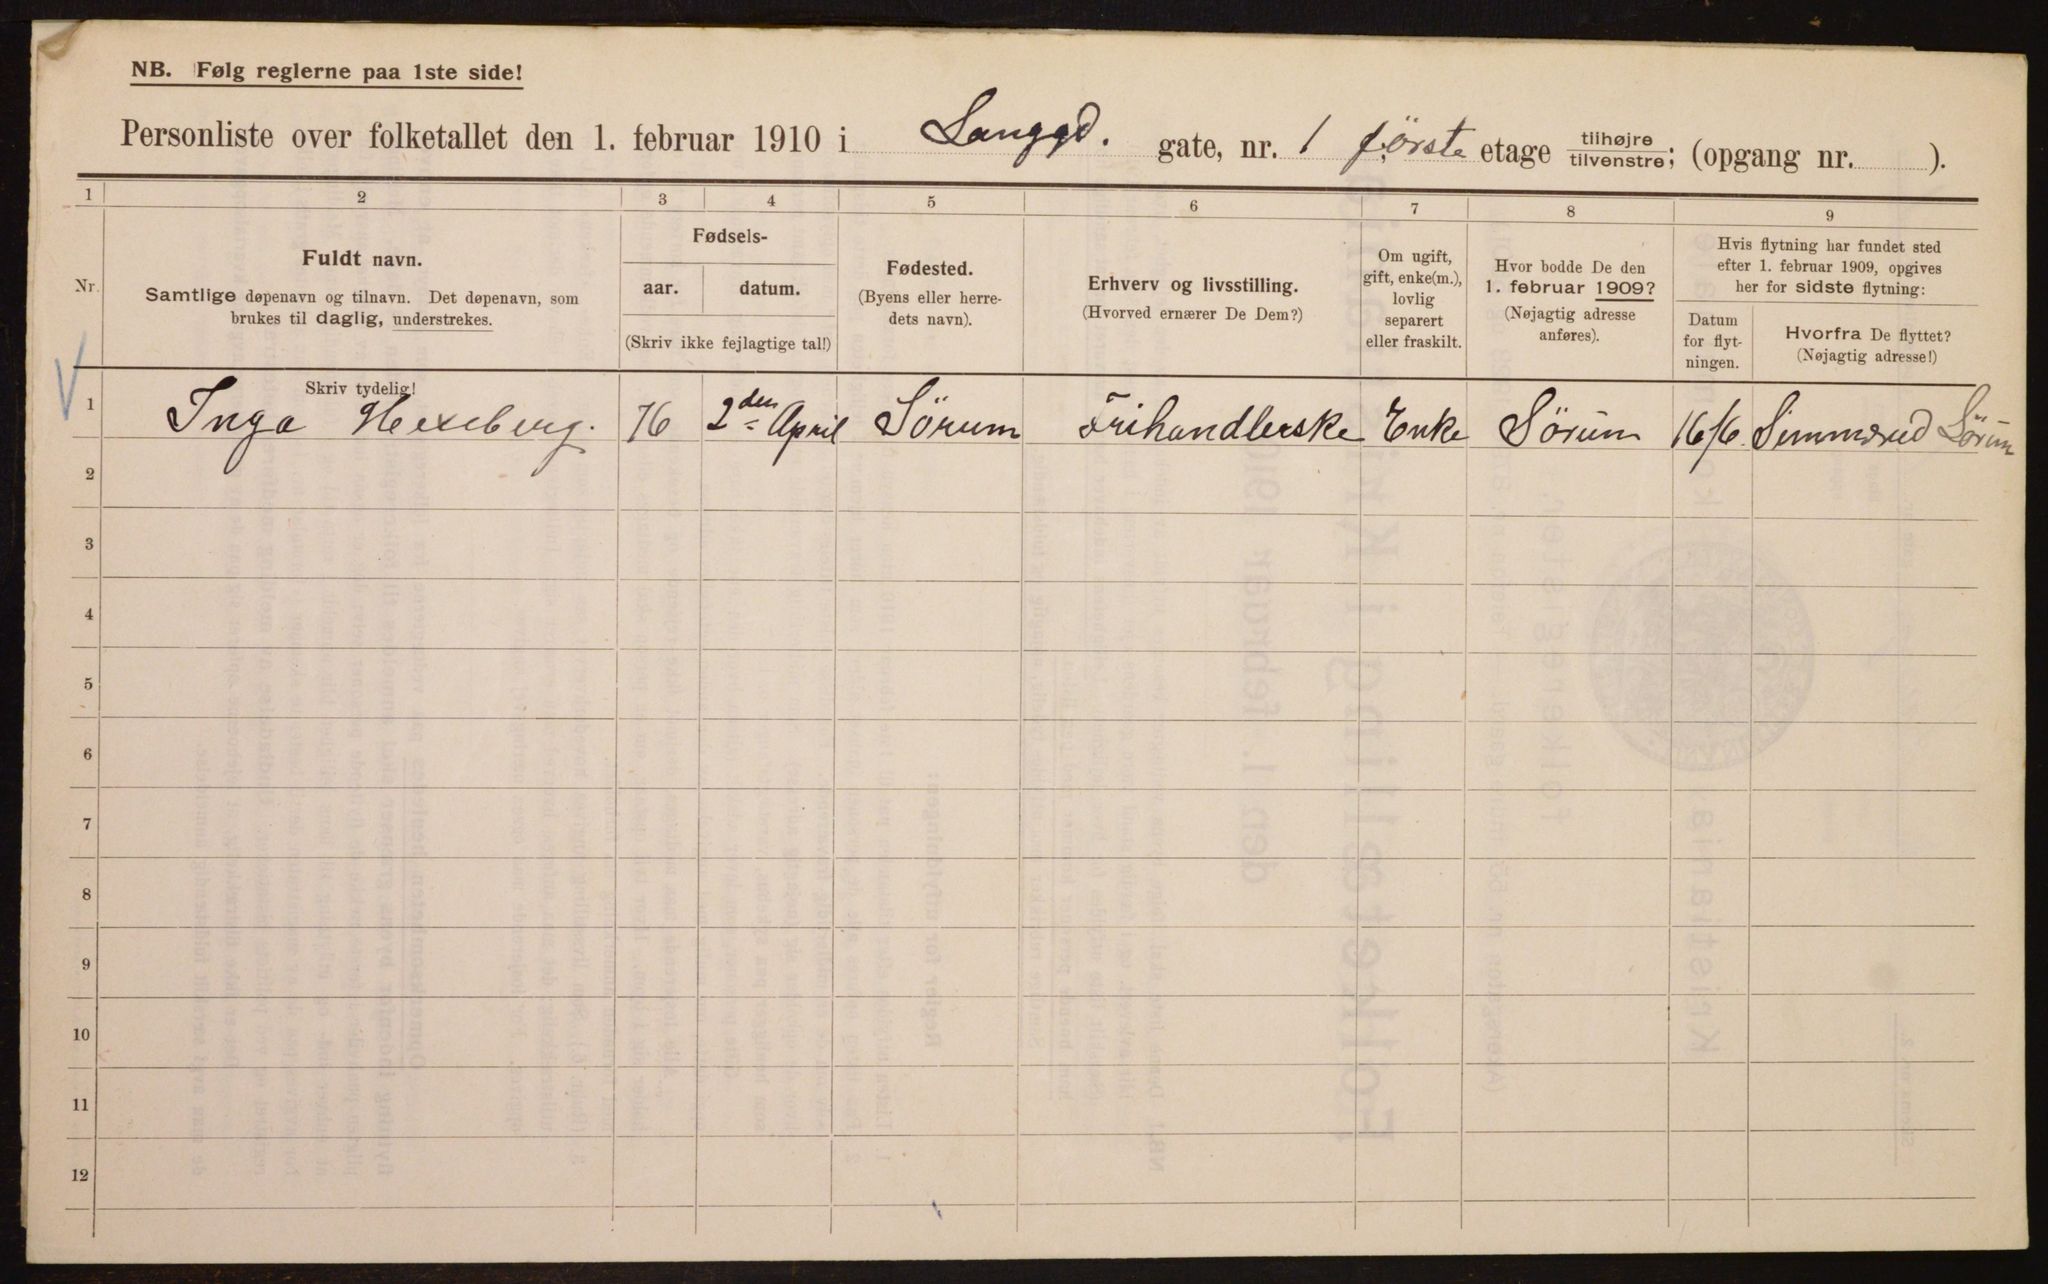 NB. Følg reglerne paa 1ste side!
Personliste over folketallet den 1. februar 1910 i Langgd. gate, nr. 1 første etage tilhøjre tilvenstre; (opgang nr. ).
1 2 3 4 5 6 7 8 9
Nr.
Fuldt navn.
Samtlige døpenavn og tilnavn. Det døpenavn, som
brukes til daglig, understrekes.
Skriv tydelig!
Fødsels-
aar. datum.
(Skriv ikke fejlagtige tal!)
Fødested.
(Byens eller herre-
dets navn).
Erhverv og livsstilling.
(Hvorved ernærer De Dem?)
Om ugift,
gift, enke(m.),
lovlig
separert
eller fraskilt.
Hvor bodde De den
1. februar 1909?
(Nøjagtig adresse
anføres).
Hvis flytning har fundet sted
efter 1. februar 1909, opgives
her for sidste flytning:
Datum
for flyt-
ningen.
Hvorfra De flyttet?
(Nøjagtig adresse!)
1 Inga Hexeberg. 76 2den April Sörum Frihandlerske Enke Sörum 16/6 Simmerud Sörum
2
3
4
5
6
7
8
9
10
11
12